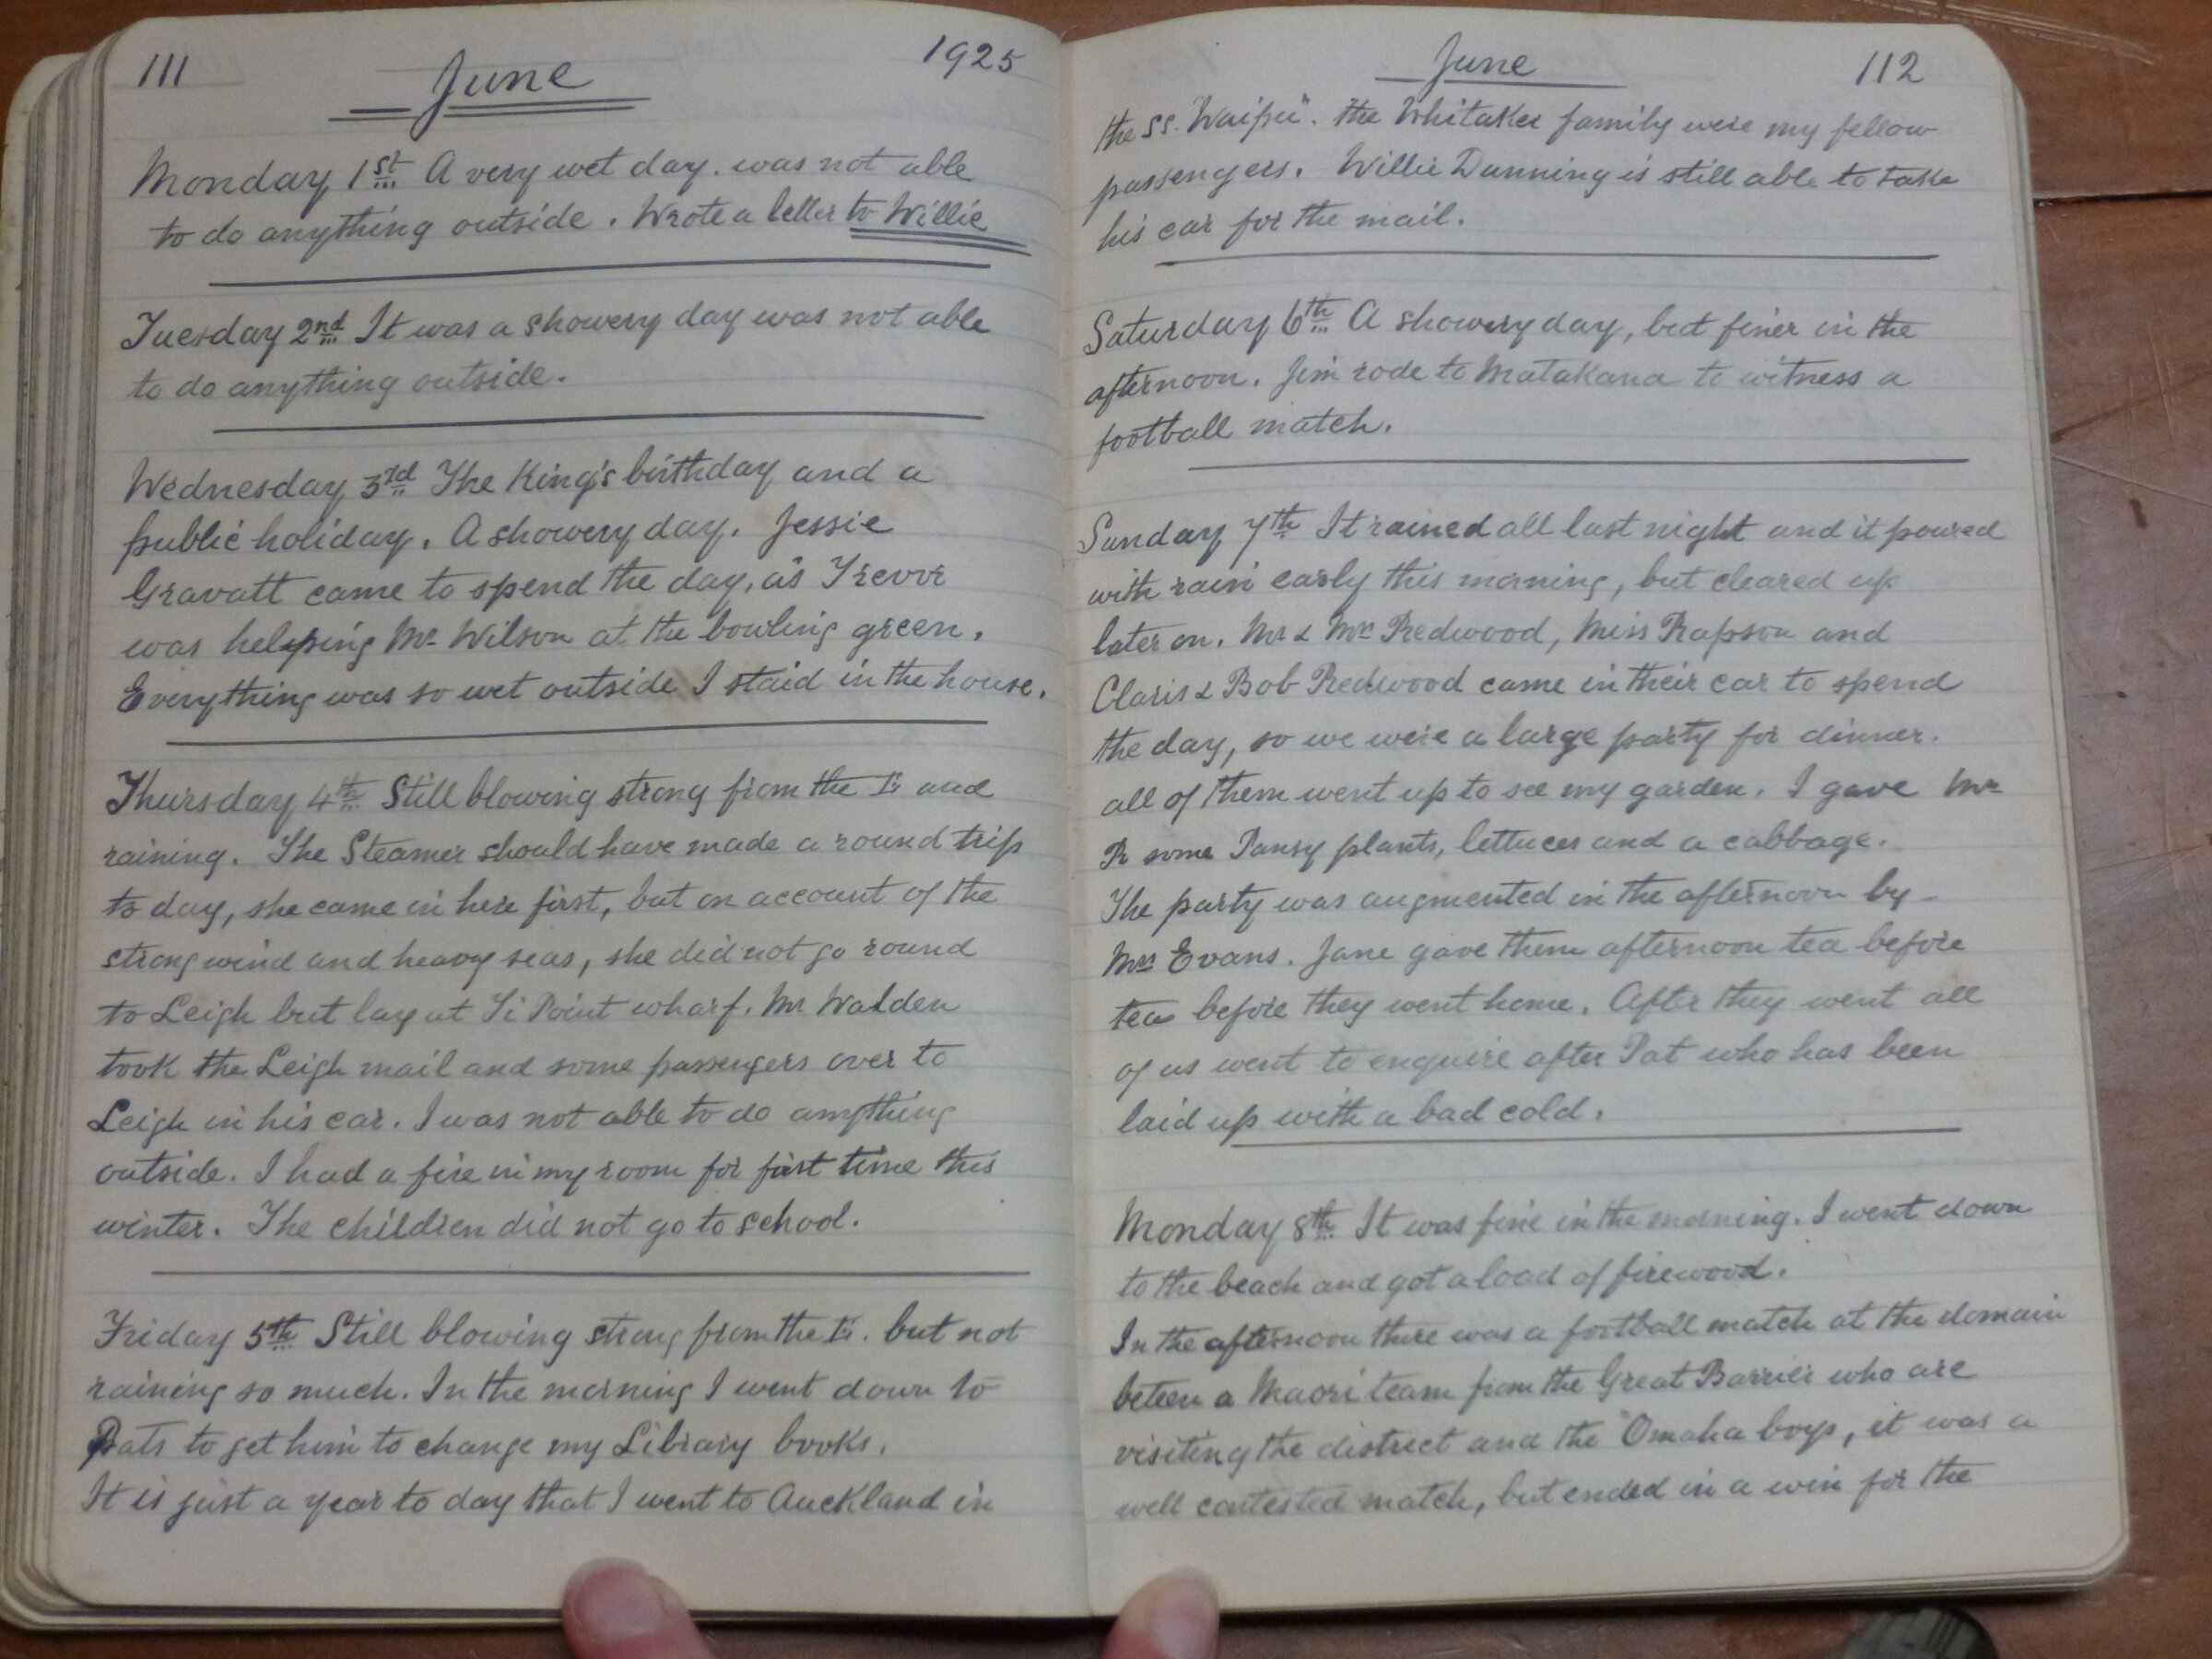 111 June 1925
Monday 1st A very wet day. was not able
to do anything outside. Wrote a letter to Willie
Tuesday 2nd It was a showery day was not able
to do anything outside.
Wednesday 3rd The King's birthday and a
public holiday. A showery day. Jessie
Gravatt came to spend the day, as Trevor
was helping Mr Wilson at the bowling green.
Everything was so wet outside I staid in the house.
Thursday 4th Still blowing strong from the E and
raining. The Steamer should have made a round trip
to day, she came in here first, but on account of the
strong wind and heavy seas, she did not go round
to Leigh but lay at Ti Point wharf. Mr Walden
took the Leigh mail and some passengers over to
Leigh in his car. I was not able to do anything
outside. I had a fire in my room for first time this
winter. The children did not go to school.
Friday 5th Still blowing strong from the E. but not
raining so much. In the morning I went down to
Pats to get him to change my Library books.
It is just a year to day that I went to Auckland in
June 112
the SS. "Waipu". the Whitaker family were my fellow
passengers. Willie Dunning is still able to take
his car for the mail.
Saturday 6th A showery day, but finer in the
afternoon. Jim rode to Matakana to witness a
football match.
Sunday 7th It rained all last night and it poured
with rain early this morning, but cleared up
later on. Mr & Mrs Redwood, Miss Rapson and
Claris & Bob Redwood came in their car to spend
the day, so we were a large party for dinner.
all of them went up to see my garden. I gave Mr
R some Pansy plants, lettuces and a cabbage.
The party was augmented in the afternoon by
Mrs Evans. Jane gave them afternoon tea before
tea before they went home. After they went all
of us went to enquire after Pat who has been
laid up with a bad cold.
Monday 8th It was fine in the morning. I went down
to the beach and got a load of firewood.
In the afternoon there was a football match at the domain
beteen a Maori team from the Great Barrier who are
visiting the district and the Omaha boys, it was a
well contested match, but ended in a win for the